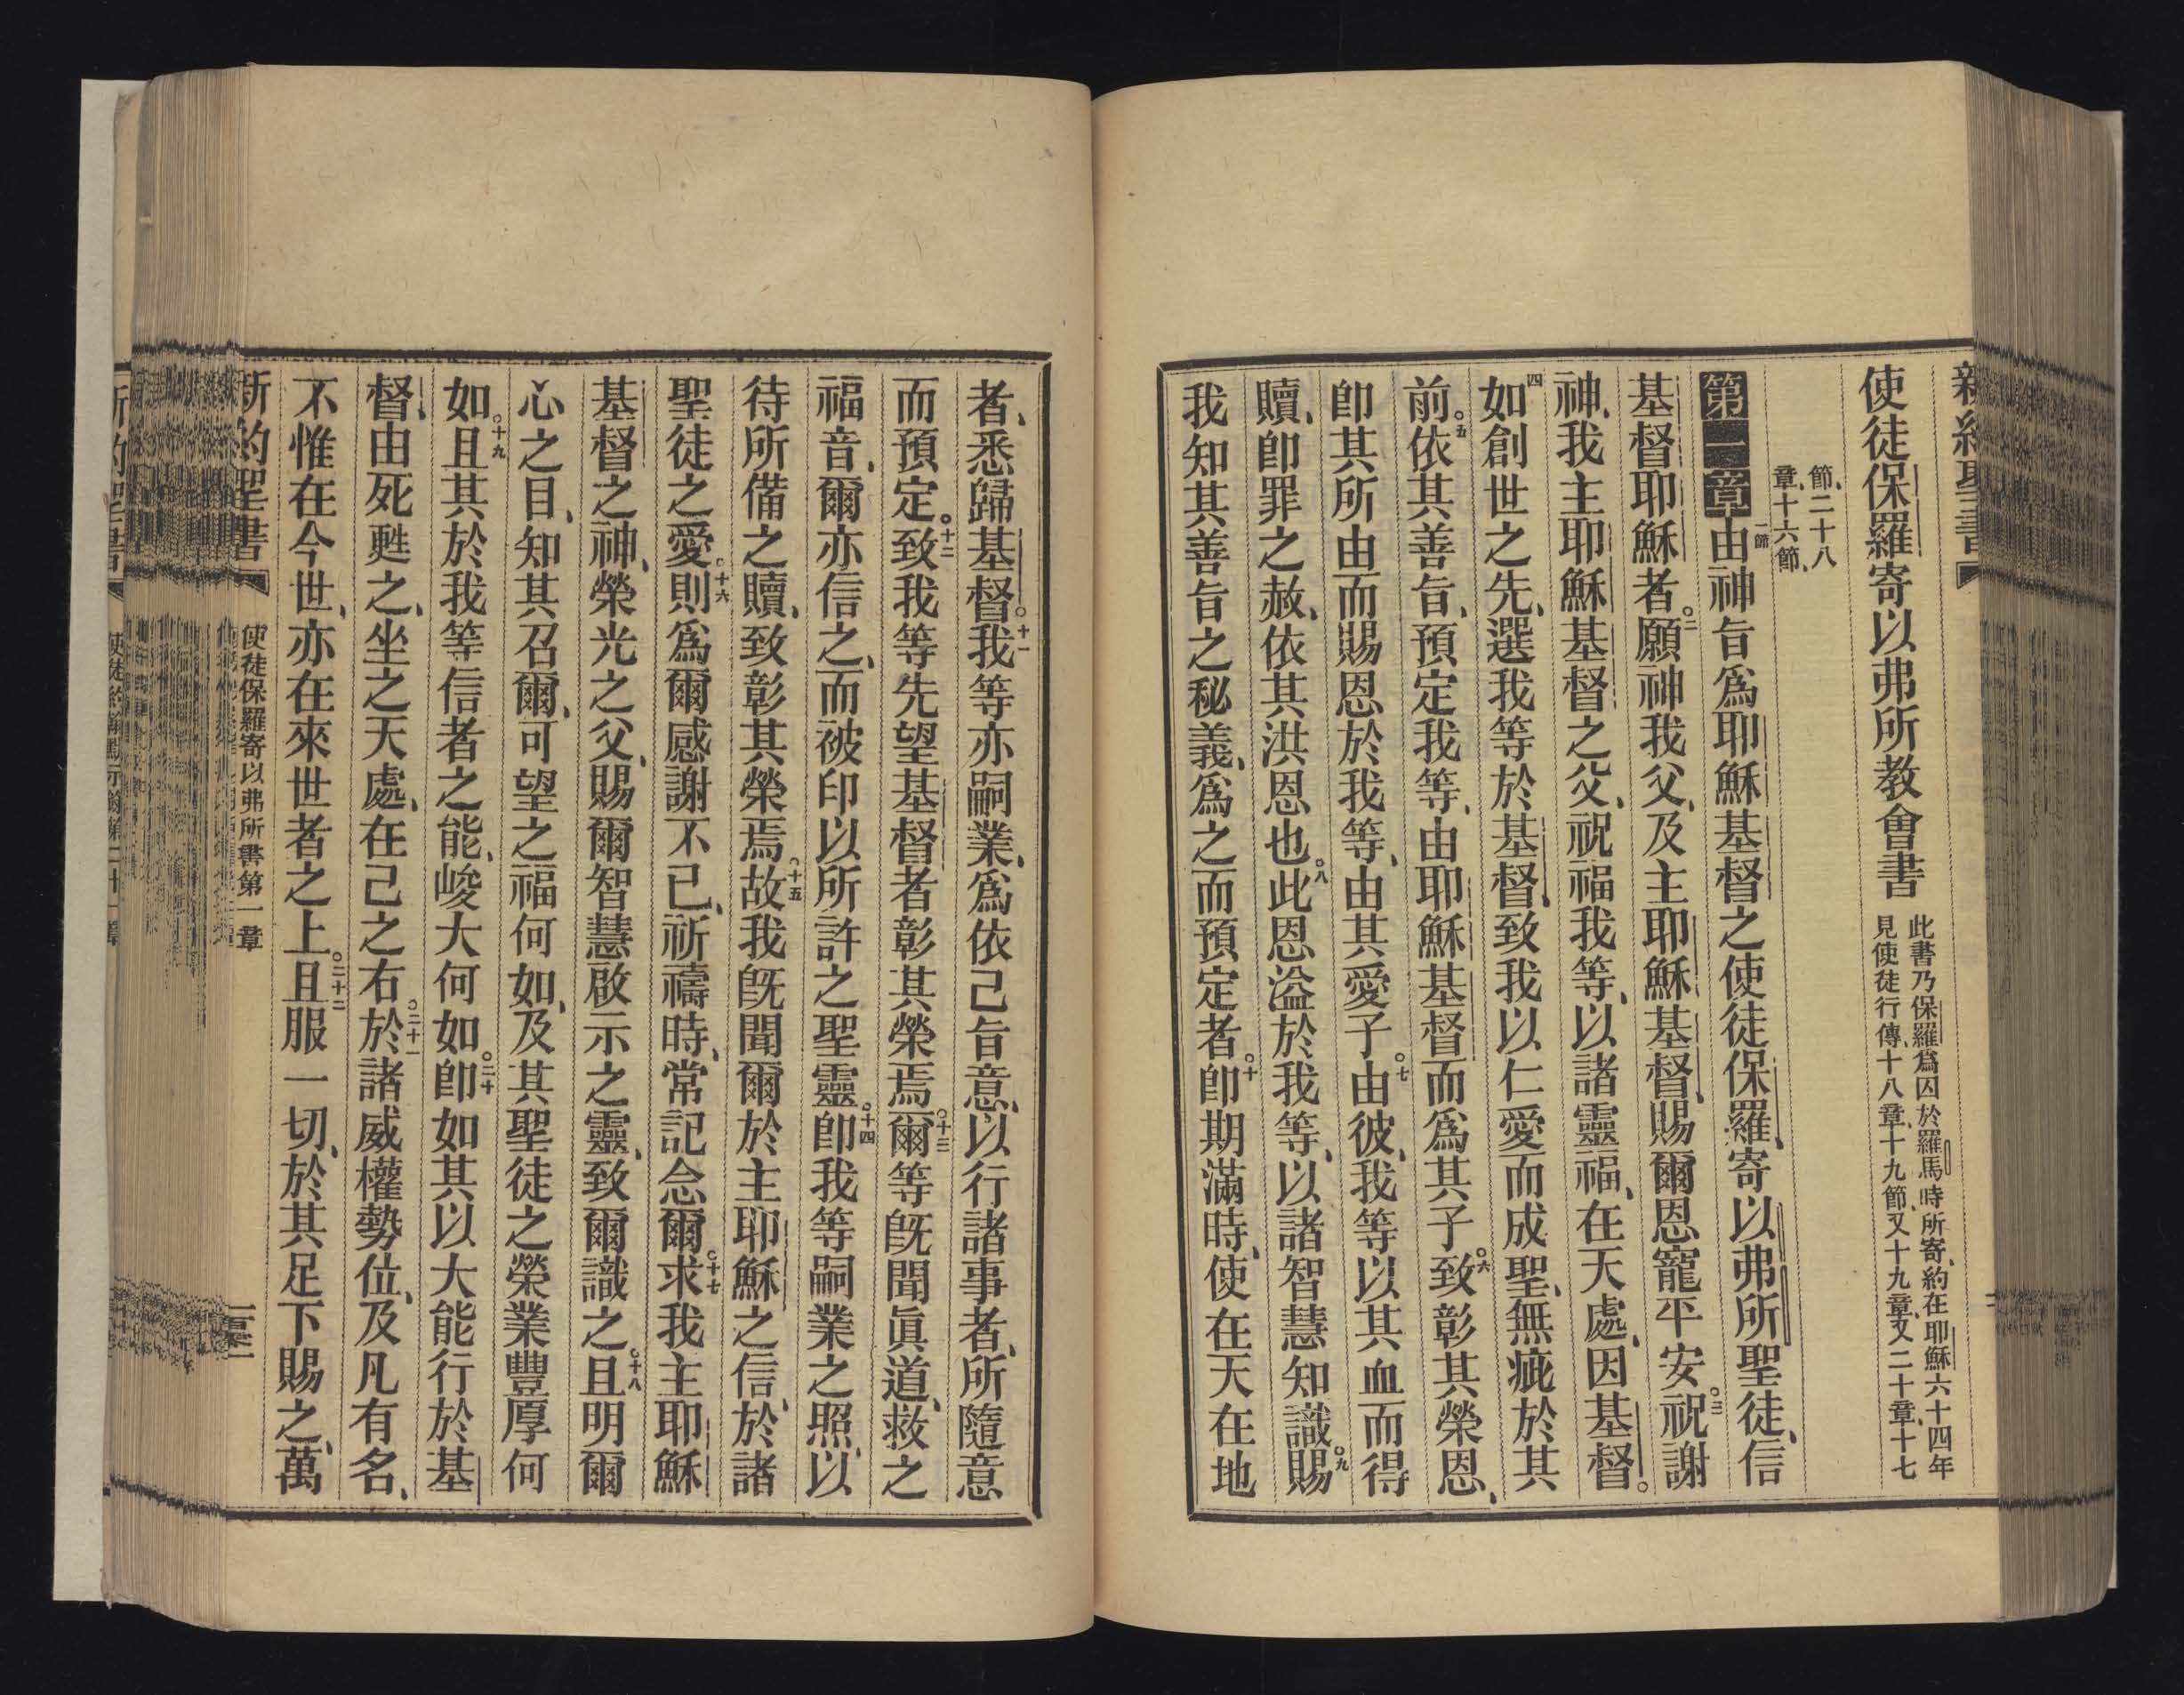 新約聖書
使徒保羅寄以弗所教會書
此書乃保羅爲囚於羅馬時所寄、約在耶穌六十四年
見使徒行傳、十八章、十九節、又十九章、又二十章、十七
節、二十八
章、十六節、
第一章一節由神旨爲耶穌基督之使徒保羅、寄以弗所聖徒、信
基督耶穌者。二願神我父、及主耶穌基督、賜爾恩寵平安。三祝謝
神、我主耶穌基督之父、祝福我等、以諸靈福、在天處、因基督。
四如創世之先、選我等於基督、致我以仁愛而成聖、無疵於其
前。五依其善旨、預定我等、由耶穌基督而爲其子。六致彰其榮恩、
卽其所由而賜恩於我等、由其愛子。七由彼、我等以其血而得
贖、卽罪之赦、依其洪恩也。八此恩溢於我等、以諸智慧知識。九賜
我知其善旨之秘義、爲之而預定者。十卽期滿時、使在天在地
者、悉歸基督。十一我等亦嗣業、爲依己旨意、以行諸事者、所隨意
而預定。十二致我等先望基督者彰其榮焉。十三爾等旣聞眞道、救之
福音、爾亦信之、而被印以所許之聖靈。十四卽我等嗣業之照、以
待所備之贖、致彰其榮焉。十五故我旣聞爾於主耶穌之信、於諸
聖徒之愛。十六則爲爾感謝不已、祈禱時、常記念爾。十七求我主耶穌
基督之神、榮光之父、賜爾智慧啟示之靈、致爾識之。十八且明爾
心之目、知其召爾、可望之福何如、及其聖徒之榮業豐厚何
如。十九且其於我等信者之能、峻大何如。二十卽如其以大能行於基
督、由死甦之、坐之天處、在己之右。二十一於諸威權勢位、及凡有名、
不惟在今世、亦在來世者之上。二十二且服一切、於其足下賜之、萬
新約聖書
使徒保羅寄以弗所書第一章